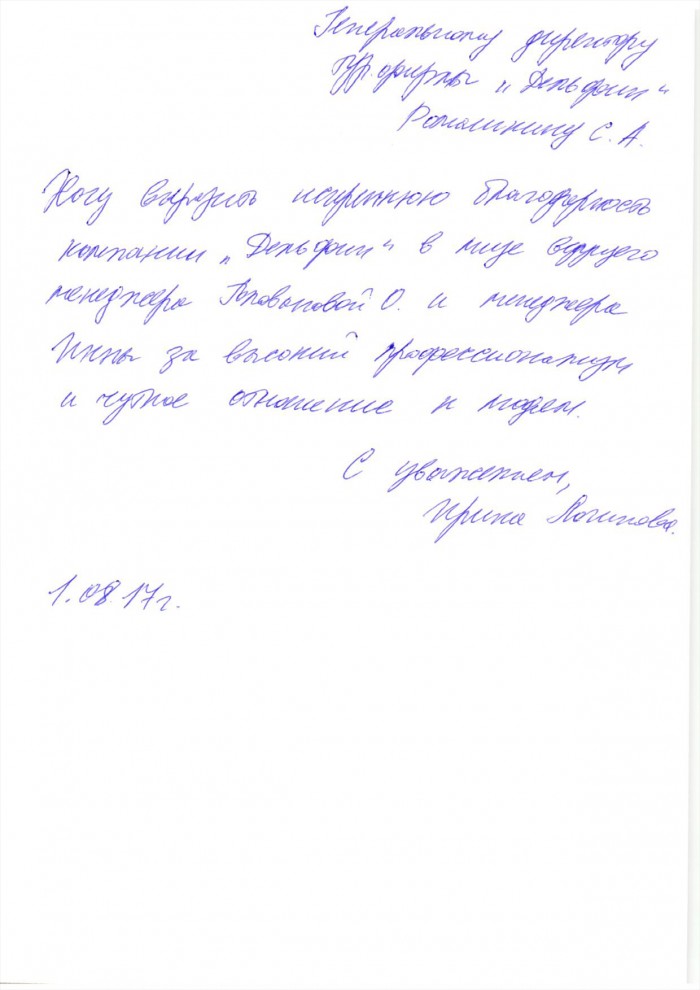 Генеральному директору
тур. фирмы „Дельфин“
Ромашкину С. А.
Хочу выразить искреннюю благодарность
компании „Дельфин“ в лице ведущего
менеджера О. и менеджера
Инны за высокий профессионализм
и чуткое отношение к людям.
С уважением,
Ирина Логинова.
1.08.17г.